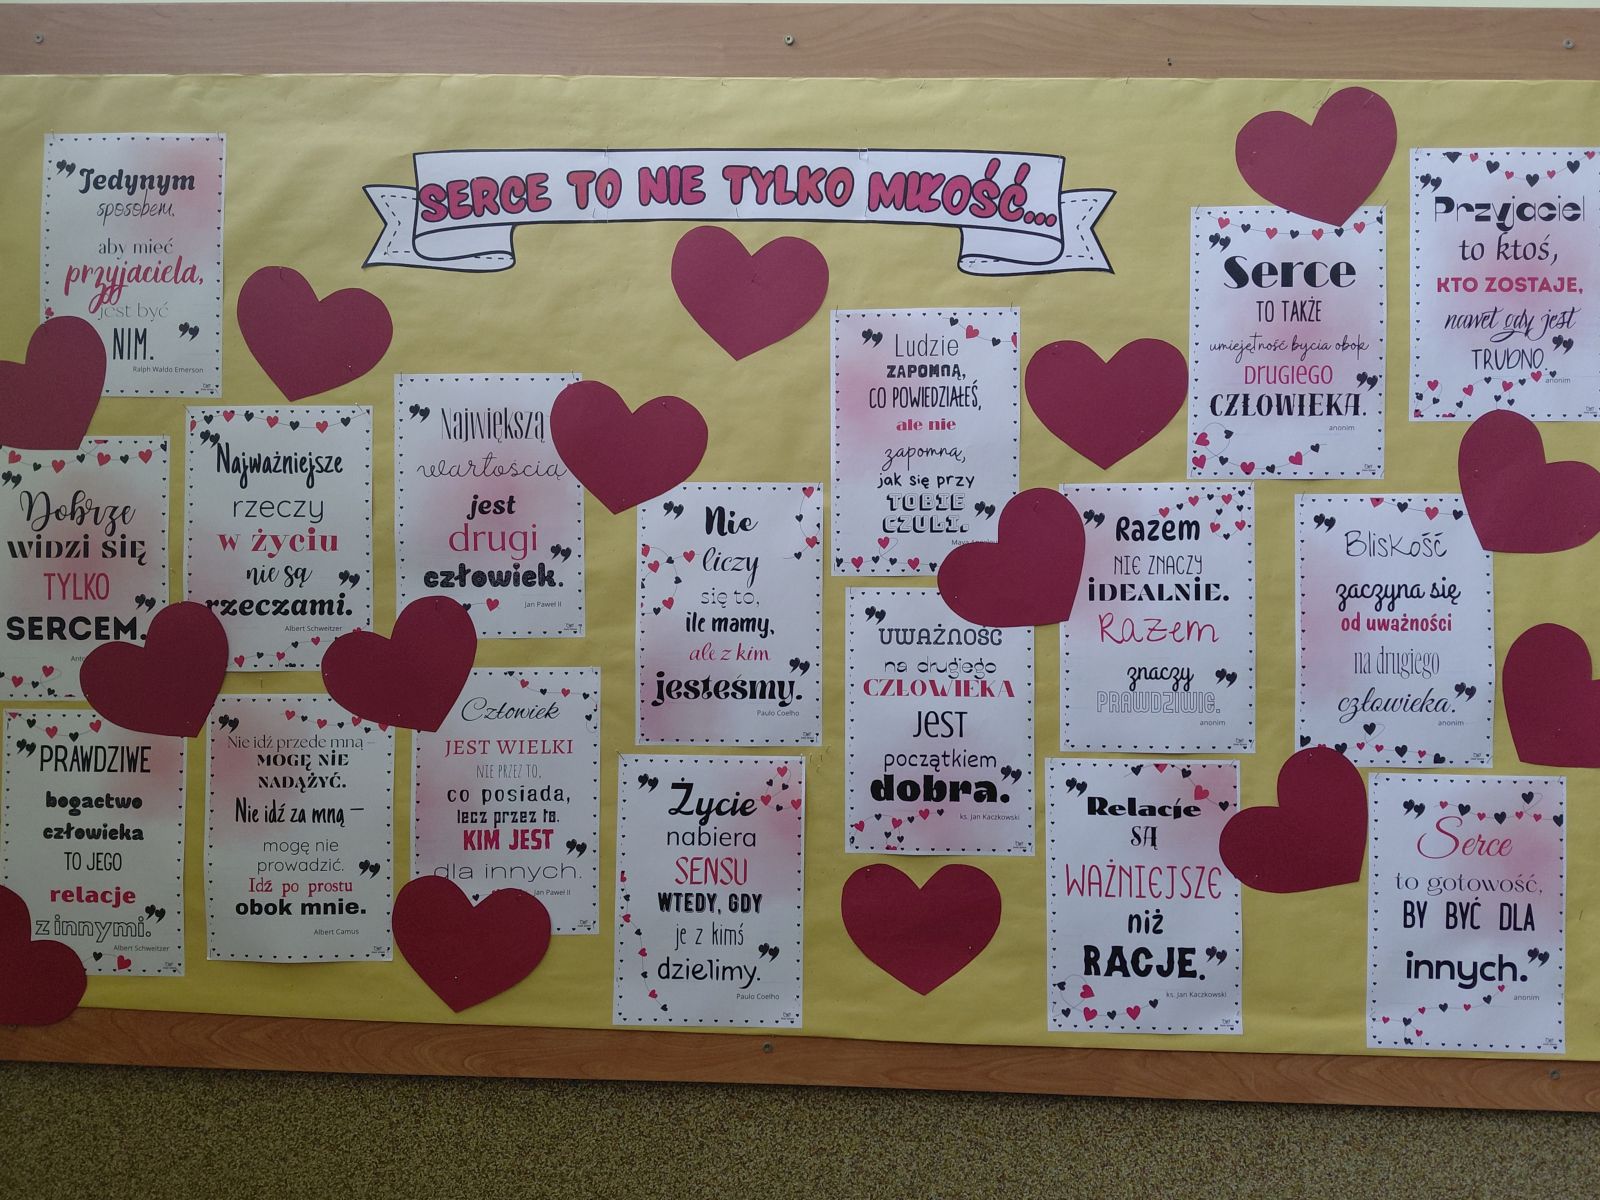 SERCE TO NIE TYLKO MIŁOŚĆ...
"Jedynym
sposobem,
aby mieć
przyjaciela,
jest być
NIM."
Ralph Waldo Emerson
"Dobrze
WIDZI SIĘ
TYLKO
SERCEM."
"Najważniejsze
rzeczy
w życiu
nie są
rzeczami."
Albert Schweitzer
"Największą
wartością
jest
drugi
człowiek."
Jan Paweł II
"PRAWDZIWE
bogactwo
człowieka
TO JEGO
relacje
z innymi."
Albert Schweitzer
"Nie idź przede mną –
MOGĘ NIE
NADĄŻYĆ.
Nie idź za mną –
mogę nie
prowadzić.
Idź po prostu
obok mnie."
Albert Camus
Człowiek
JEST WIELKI
NIE PRZEZ TO,
co posiada,
lecz przez to,
KIM JEST
dla innych."
Jan Paweł II
"Nie
liczy
się to,
ile mamy,
ale z kim
jesteśmy."
Paulo Coelho
"Życie
nabiera
SENSU
WTEDY, GDY
je z kimś
dzielimy."
Paulo Coelho
"Ludzie
ZAPOMNĄ,
CO POWIEDZIAŁEŚ,
ale nie
zapomną,
jak się przy
TOBIE
CZULI."
Maya
"UWAŻNOŚĆ
na drugiego
CZŁOWIEKA
JEST
początkiem
dobra."
ks. Jan Kaczkowski
"Serce
TO TAKŻE
umiejętność bycia obok
DRUGIEGO
CZŁOWIEKA."
anonim
"Przyjaciel
to ktoś,
KTO ZOSTAJE,
nawet gdy jest
TRUDNO."
anonim
"Razem
NIE ZNACZY
iDEALNIE.
Razem
znaczy
PRAWDZIWIE."
anonim
Bliskość
zaczyna się
od uważności
na drugiego
człowieka."
anonim
"Relacje
SĄ
WAŻNIEJSZE
niż
RACJE."
ks. Jan Kaczkowski
"Serce
to gotowość,
BY BYĆ DLA
innych."
anonim